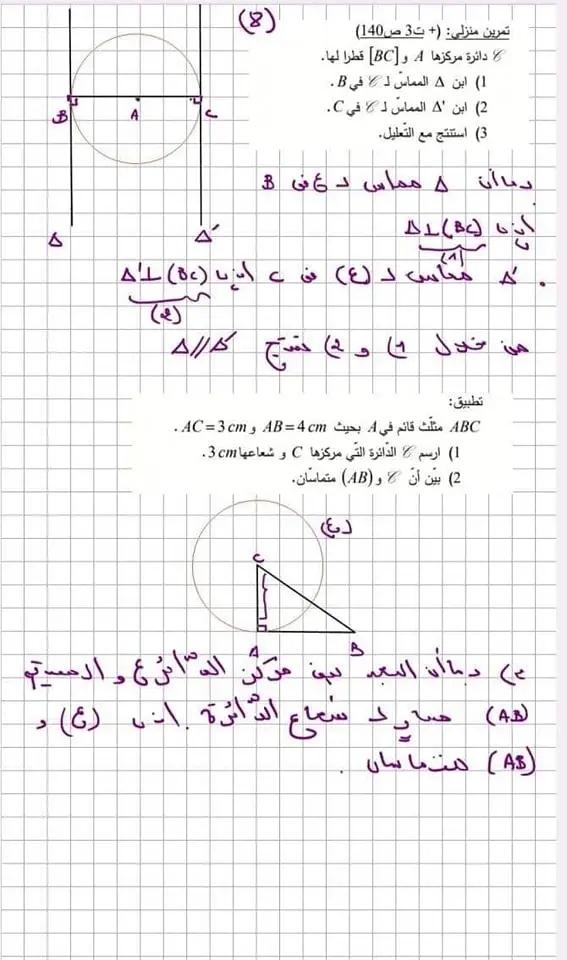 (8)
تمرين منزلي: (+ ت3 ص140)
𝒞 دائرة مركزها A و [BC] قطرا لها.
1) ابن Δ المماسّ لـ 𝒞 في B.
2) ابن 'Δ المماسّ لـ 𝒞 في C.
3) استنتج مع التّعليل.
B A C
Δ Δ'
بما أن Δ مماس لـ ع في B
إذن Δ⊥(BC)
(1)
Δ' مماس لـ (ع) في C إذن Δ'⊥(BC)
(2)
من خلال 1) و 2) نستنتج Δ//Δ'
تطبيق:
ABC مثلّث قائم في A بحيث AB = 4 cm و AC = 3 cm .
1) ارسم 𝒞 الدّائرة التّي مركزها C و شعاعها 3cm.
2) بيّن أنّ 𝒞 و (AB) متماسّان.
(ع)
C
A B
2) بما أن البعد بين مركز الدّائرة ع و المستقيم
(AB) مساوٍ لـ شعاع الدّائرة . إذن (ع) و
(AB) متماسان .